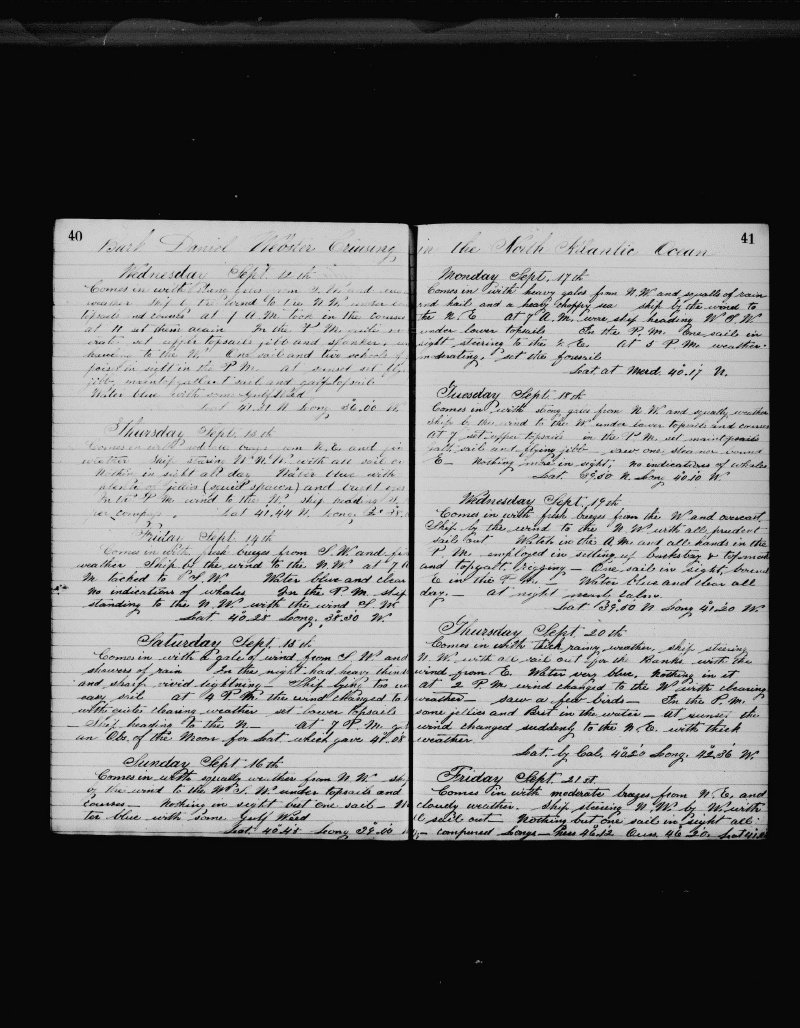 40
Bark Daniel Webster Cruising
Wednesday Sept. 12th
Comes in with from and
weather Ship by the wind to the N.W. under
topsails and courses at 7 A.M. took in the courses
at 11 set them again In the P.M. more
set upper topsails jib and spanker
heading to the N. One sail and two schools of
in sight in the P.M. at sunset set fly
jib, maintopgallant sail and gafftopsail
Water blue with some gulfweed
Lat 41.31 N Long 36.00 W.
Thursday Sept. 13th
Comes in with from N.E. and
weather Ship W.N.W. with all sail
Nothing in sight all day Water blue with
plenty of jellies (squid spawn) and
In the P.M. wind to the N. ship heading
per compass. Lat 41.44 N. Long. 38.
Friday Sept. 14th
Comes in with fresh breezes from S.W. and
weather Ship by the wind to the N.W. at 7 A
M. tacked to S.W. Water blue and clear
No indications of whales In the P.M. ship
standing to the N.W. with the wind S.W.
Lat 40.28 Long. 38.30 W.
Saturday Sept. 15th
Comes in with a gale of wind from S.W. and
showers of rain In the night had heavy
and sharp vivid lightning Ship lying too
easy sail at 4 P.M. the wind changed to
with clearing weather set lower topsails
Ship heading to the N.— at 7 P.M.
an Obs. of the Moon for Lat. which gave 41.08
Sunday Sept. 16th
Comes in with squally weather from N.W.
by the wind to the under topsails and
courses— Nothing in sight but one sail—
ter blue with some Gulf Weed
Lat. 40.48 Long 39.00
41
in the North Atlantic Ocean
Monday Sept. 17th
Comes in with heavy gales from N.W. and squalls of rain
and hail and a heavy choppy sea ship by the wind to
the N.E at 7 A.M. wore ship heading W.S.W
under lower topsails In the P.M. One sail in
sight steering to the at 5 P.M. weather
moderating, set the foresail
Lat at Merd. 40.17 N.
Tuesday Sept. 18th
Comes in with strong gales from N.W. and squally weather
Ship by the wind to the W under lower topsails and courses
At 7 set upper topsails in the P.M. set maintopgall
sail and flying jibb— saw one steamer bound
E— Nothing more in sight, no indications of whales
Lat. 39.50 N. Long 40.10 W.
Wednesday Sept. 19th
Comes in with fresh breezes from the W and overcast
Ship by the wind to the N.W. with all prudent
sail out Watch in the A.M. and all hands in the
P.M. employed in setting up backstay & topmast
and topgalt. rigging— One sail in sight, bound
E in the P.M.— Water blue and clear all
day.— at night nearly calm.
Lat 39.50 N Long 41.20 W.
Thursday Sept 20th
Comes in with thick rainy weather, ship steering
N.W. with all sail out for the Banks with the
wind from E. Water very blue, Nothing in it
at 2 P.M. wind changed to the W with clearing
weather— saw a few birds— In the P.M.
some jellies and in the water— at sunset the
wind changed suddenly to the N.E. with thick
weather.
Lat. by Cal. 40.20 Long. 42.36 W.
Friday Sept. 21st.
Comes in with moderate breezes from N.E. and
cloudy weather. ship steering N.W. by W. with
all sail out— Nothing but one sail in sight all
compared Longs—